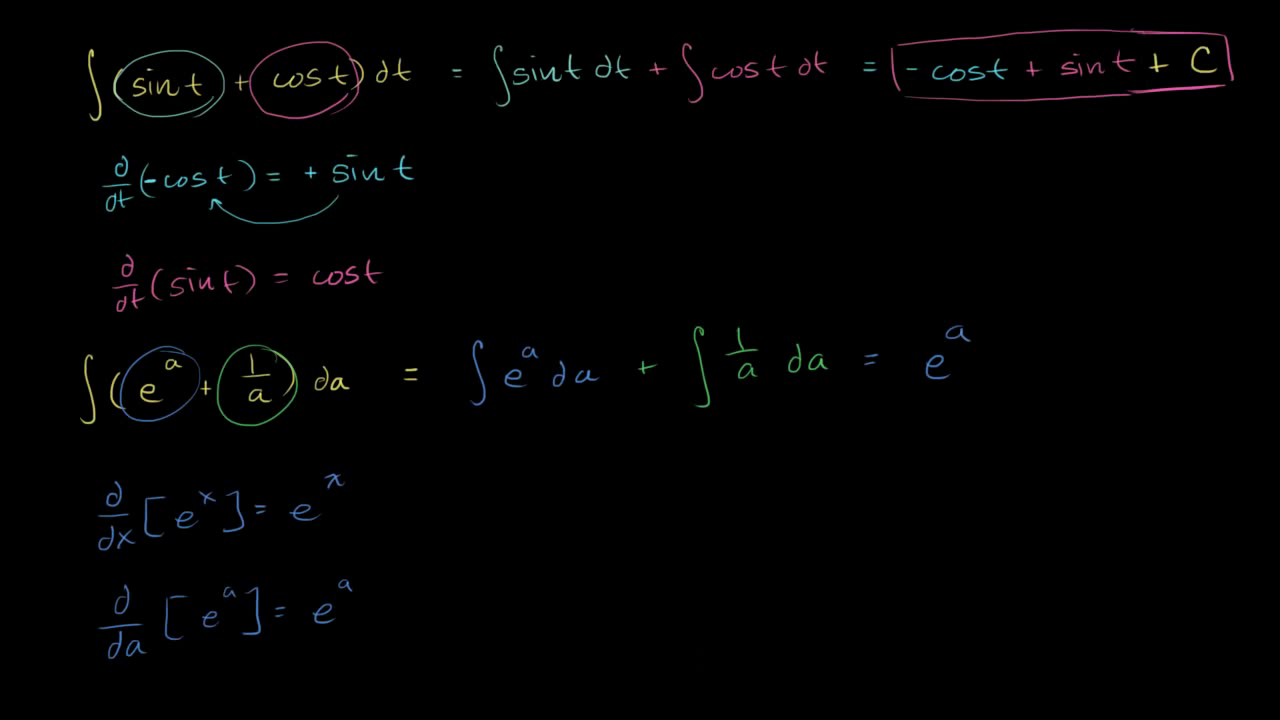 ∫(sin t + cos t) dt = ∫sin t dt + ∫cos t dt = -cos t + sin t + C
d/dt (-cos t) = + sin t
d/dt (sin t) = cos t
∫(e^a + 1/a) da = ∫e^a da + ∫1/a da = e^a
d/dx [e^x] = e^x
d/da [e^a] = e^a